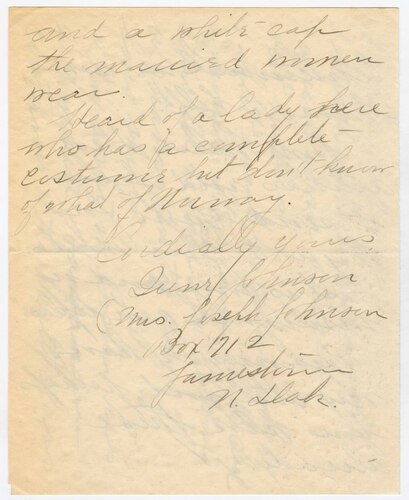 and a white cap
the married women
wear.
Heard of a lady here
who has a complete
costume but don't know
of what of Norway.
Cordially yours,
Johnson
(Mrs. Joseph Johnson
Box 712
Jamestown
N. Dak.